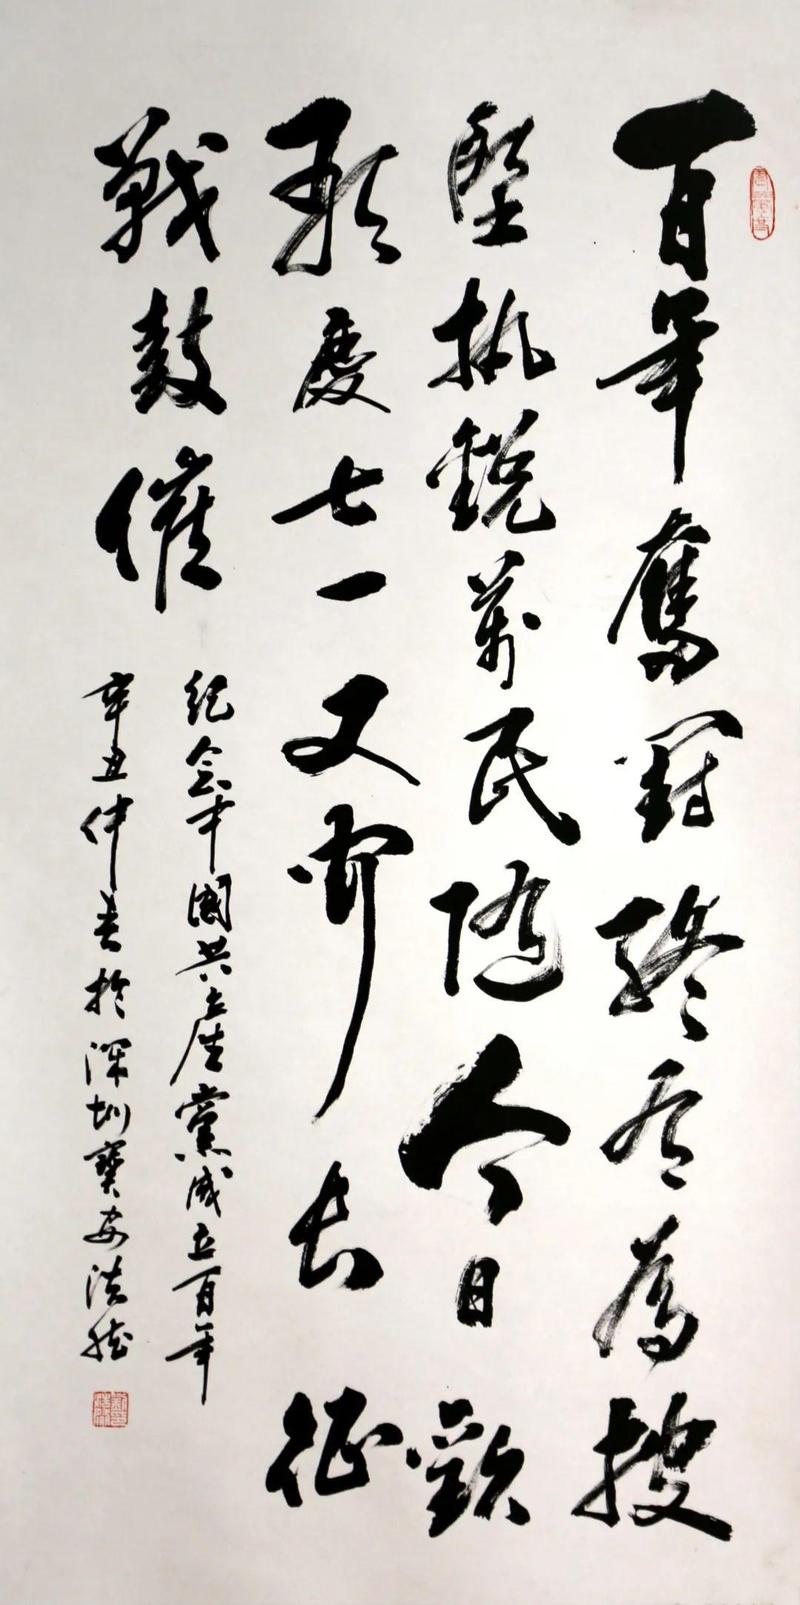 百年奮鬥終有為披
堅執銳萬民隨今日歡
歌慶七一又聞長征
戰鼓催
紀念中國共產黨成立百年
辛丑仲春於深圳寶安